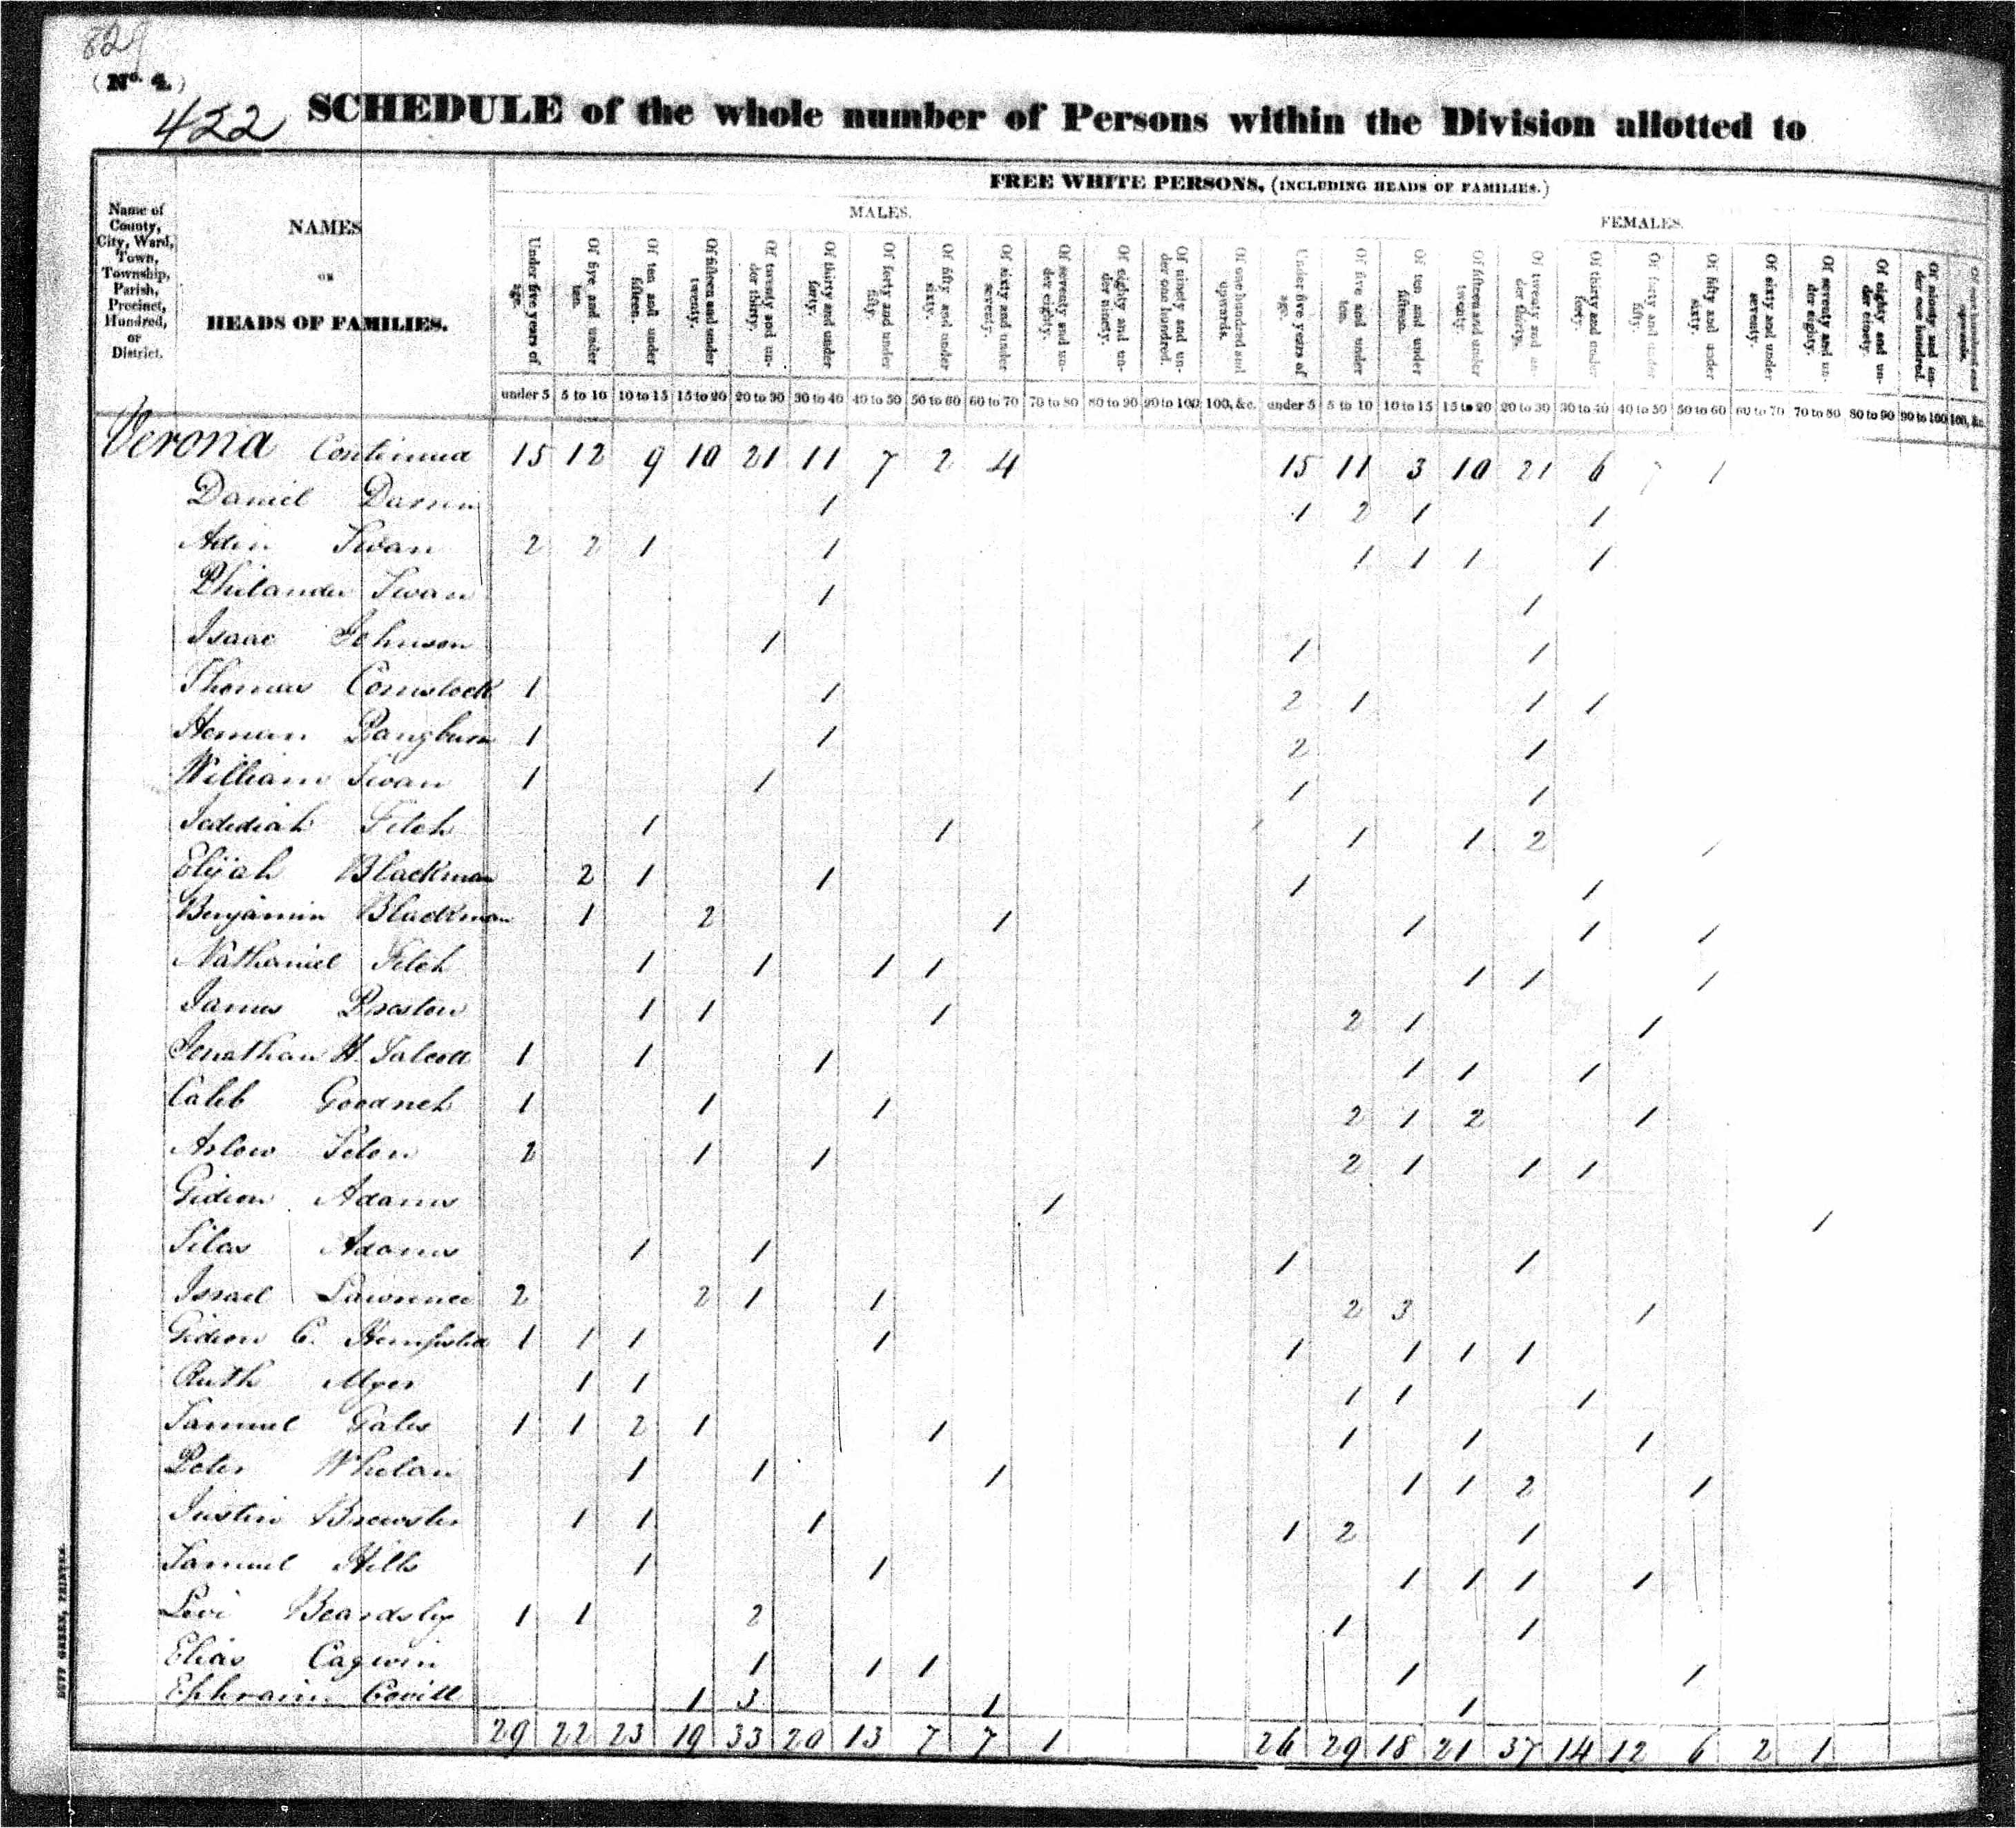 829
(No. 4.)
422 SCHEDULE of the whole number of Persons within the Division allotted to
FREE WHITE PERSONS, (INCLUDING HEADS OF FAMILIES.)
MALES. FEMALES.
Name of County, City, Ward, Town, Township, Parish, Precinct, Hundred, or District.
NAMES OR HEADS OF FAMILIES.
Under five years of age. Of five and under ten. Of ten and under fifteen. Of fifteen and under twenty. Of twenty and under thirty. Of thirty and under forty. Of forty and under fifty. Of fifty and under sixty. Of sixty and under seventy. Of seventy and under eighty. Of eighty and under ninety. Of ninety and under one hundred. Of one hundred and upwards. Under five years of age. Of five and under ten. Of ten and under fifteen. Of fifteen and under twenty. Of twenty and under thirty. Of thirty and under forty. Of forty and under fifty. Of fifty and under sixty. Of sixty and under seventy. Of seventy and under eighty. Of eighty and under ninety. Of ninety and under one hundred. Of one hundred and upwards.
under 5 5 to 10 10 to 15 15 to 20 20 to 30 30 to 40 40 to 50 50 to 60 60 to 70 70 to 80 80 to 90 90 to 100 100, &c. under 5 5 to 10 10 to 15 15 to 20 20 to 30 30 to 40 40 to 50 50 to 60 60 to 70 70 to 80 80 to 90 90 to 100 100, &c.
Verona Continued 15 12 9 10 21 11 7 2 4 15 11 3 10 21 6 7 1
Daniel 1 1 2 1 1
Adin Swan 2 2 1 1 1 1 1 1
Philander Swan 1 1
Isaac Johnson 1 1 1
Thomas Comstock 1 1 2 1 1 1
Heman Pangburn 1 1 2 1
William Swan 1 1 1 1
Jedediah Fitch 1 1 1 1 2 1
Elijah Blackman 2 1 1 1 1
Benjamin Blackman 1 2 1 1 1 1
Nathaniel Fitch 1 1 1 1 1 1 1
James Preston 1 1 1 2 1 1
Jonathan H. Talcott 1 1 1 1 1 1
Caleb Goodrich 1 1 1 2 1 2 1
2 1 1 2 1 1 1
Gideon Adams 1 1
Silas Adams 1 1 1 1
Israel Lawrence 2 2 1 1 2 3 1
Gideon C. Hempsted 1 1 1 1 1 1 1 1
Ruth Myer 1 1 1 1 1
Samuel Gales 1 1 2 1 1 1 1 1
Peter Whelan 1 1 1 1 1 2 1
Justin Brewster 1 1 1 1 2 1
Samuel Hills 1 1 1 1 1 1
Levi Beardsley 1 1 2 1 1
Elias Cagwin 1 1 1 1 1
Ephraim Covill 1 3 1 1
29 22 23 19 33 20 13 7 7 1 26 29 18 21 37 14 12 6 2 1
DUFF GREEN, PRINTER.